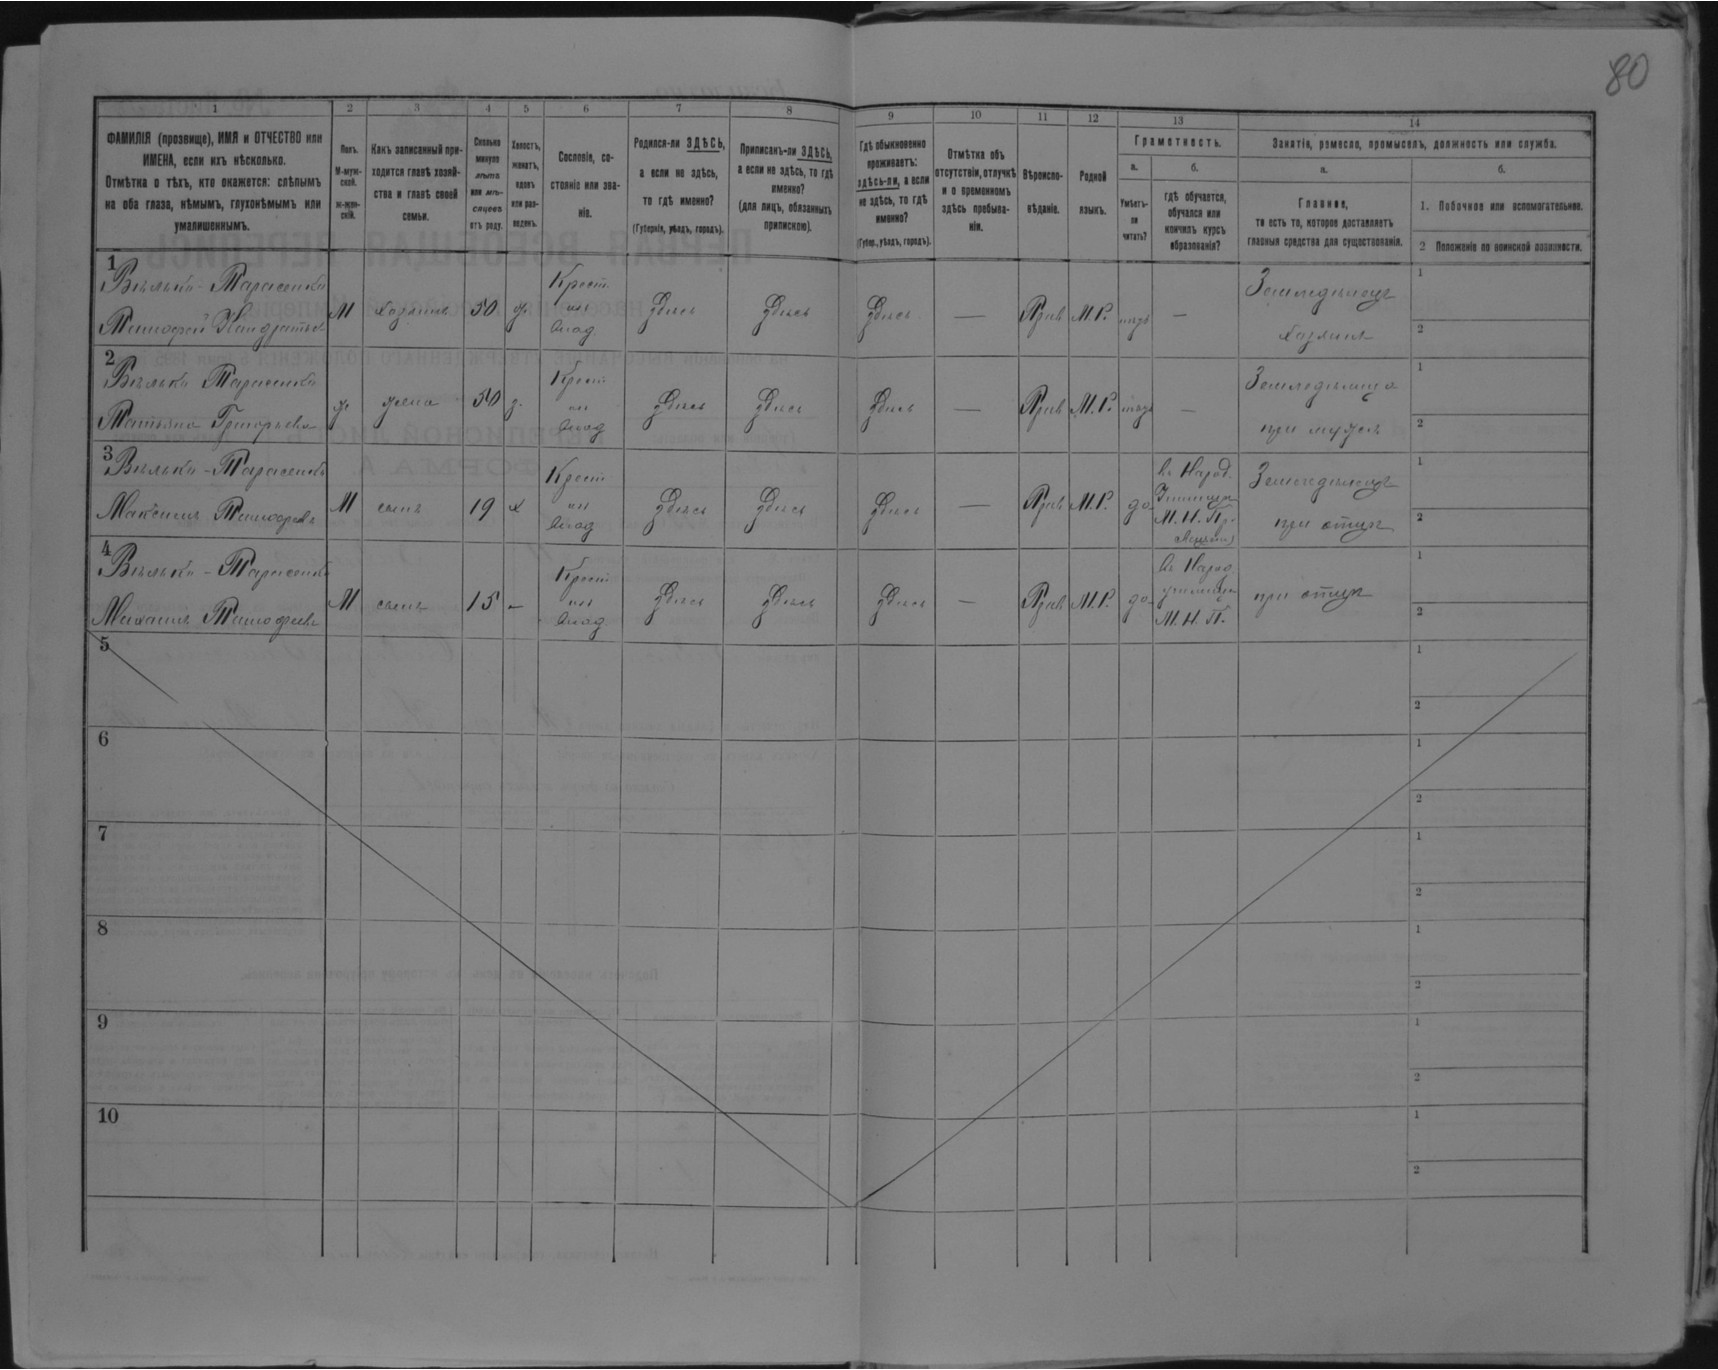 80
1 2 3 4 5 6 7 8 9 10 11 12 13 14
ФАМИЛІЯ (прозвище), ИМЯ и ОТЧЕСТВО или
ИМЕНА, если ихъ нѣсколько.
Отмѣтка о тѣхъ, кто окажется: слѣпымъ
на оба глаза, нѣмымъ, глухонѣмымъ или
умалишеннымъ.
Полъ.
М-муж-
ской.
Ж-жен-
скій.
Какъ записанный при-
ходится главѣ хозяй-
ства и главѣ своей
семьи.
Сколько
минуло
лѣтъ
или мѣ-
сяцевъ
отъ роду.
Холостъ,
женатъ,
вдовъ
или раз-
веденъ.
Сословіе, со-
стояніе или зва-
ніе.
Родился-ли ЗДѢСЬ,
а если не здѣсь,
то гдѣ именно?
(Губернія, уѣздъ, городъ).
Приписанъ-ли ЗДѢСЬ,
а если не здѣсь, то гдѣ
именно?
(для лицъ, обязанныхъ
припискою).
Гдѣ обыкновенно
проживаетъ:
здѣсь-ли, а если
не здѣсь, то гдѣ
именно?
(Губер., уѣздъ, городъ).
Отмѣтка объ
отсутствіи, отлучкѣ
и о временномъ
здѣсь пребыва-
ніи.
Вѣроиспо-
вѣданіе.
Родной
языкъ.
Грамотность.
а.
Умѣетъ-
ли
читать?
б.
гдѣ обучается,
обучался или
кончилъ курсъ
образованія?
Занятіе, ремесло, промыселъ, должность или служба.
а.
Главное,
то есть то, которое доставляетъ
главныя средства для существованія.
б.
1. Побочное или вспомогательное.
2 Положеніе по воинской повинности.
1
Тимофей Кондратьев
М
хозяинъ
50
ж.
Крест.
из
влад
здѣсь
здѣсь
здѣсь
—
Прав
М.Р.
нѣтъ
—
Земледѣлецъ
хозяинъ
1
2
2
Татьяна Григорьева
ж
жена
50
з.
Крест
из
влад
здѣсь
здѣсь
здѣсь
—
Прав
М.Р.
нѣтъ
—
Земледѣлица
при мужѣ
1
2
3
Максимъ Тимофеевъ
М
сынъ
19
х
Крест
из
влад
здѣсь
здѣсь
здѣсь
—
Прав
М.Р.
да
въ Народ.
Училищѣ
М. Н. Пр.
Земледѣлецъ
при отцѣ
1
2
4
Михаилъ Тимофеевъ
М
сынъ
15
–
Крест
из
влад
здѣсь
здѣсь
здѣсь
—
Прав
М.Р.
да
въ Народ
училищѣ
М. Н. П.
при отцѣ
1
2
5
1
2
6
1
2
7
1
2
8
1
2
9
1
2
10
1
2